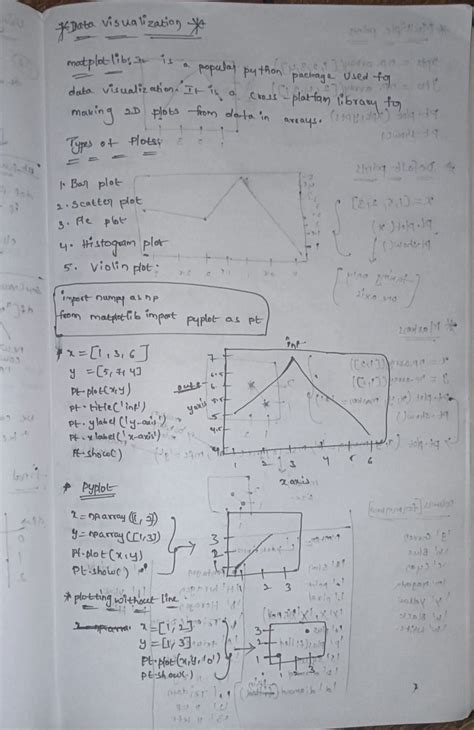 * Data visualization *
matplotlib:- It is a popular python package used for
data visualization. It is a cross-platfam library for
making 2D plots from data in arrays.
Types of Plots:
1. Bar plot
2. Scatter plot
3. Pie plot
4. Histogram plot
5. Violin plot.
import numpy as np
from matplotlib import pyplot as pt
* x = [1, 3, 6]
y = [5, 7, 4]
pt.plot(x,y)
pt.title('inf')
pt.ylabel('y-axis')
pt.xlabel('x-axis')
pt.show()
7
6.5
6
5.5
5
4.5
yaxis
1 2 3 4 5 6
x axis
* Pyplot
x = np.array([1, 3])
y = np.array([1,3])
pt.plot(x,y)
pt.show()
3
2
1
2 3
* plotting without line
x = [1, 2]
y = [1, 3]
pt.plot(x,y,'o')
pt.show()
3
2
1
1 2 3